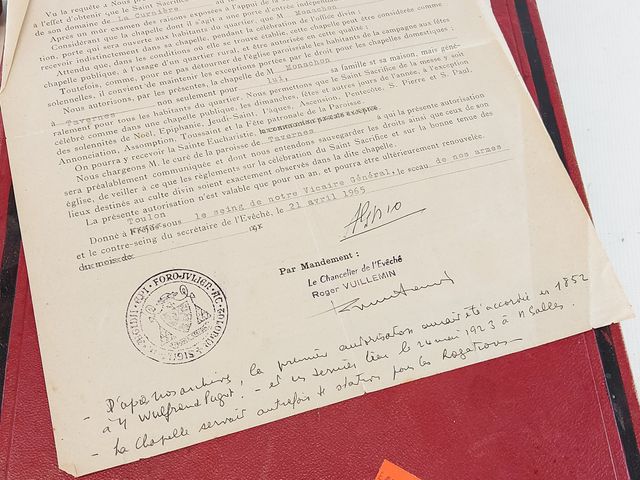 Vu la requête à Nous p
à l'effet d'obtenir que le Saint Sacrifice
de son domaine de La Curnière
Après un mûr examen des raisons exposées à l'appui de la
Considérant que la chapelle dont il s'agit a une porte d'entrée indépendante
tion, porte qui sera ouverte aux habitants du quartier, que M Monachon
recevoir indistinctement dans sa chapelle, pendant la célébration de l'office divin ;
Attendu que dans les conditions où elle se trouve établie, cette chapelle peut être considérée comme
chapelle publique, à l'usage d'un quartier rural, et être autorisée en cette qualité ;
Toutefois, comme, pour ne pas détourner de l'église paroissiale les habitants de la campagne aux fêtes
solennelles, il convient de maintenir les exceptions portées par le droit pour les chapelles domestiques :
Nous autorisons, par les présentes, la chapelle de M Monachon
à Tavernes non seulement pour lui, sa famille et sa maison, mais géné-
ralement pour tous les habitants du quartier. Nous permettons que le Saint Sacrifice de la messe y soit
célébré comme dans une chapelle publique, les dimanches, fêtes et autres jours de l'année, à l'exception
des solennités de Noël, Epiphanie, Jeudi-Saint, Pâques, Ascension, Pentecôte, S. Pierre et S. Paul,
Annonciation, Assomption, Toussaint et la Fête patronale de la Paroisse.
On pourra y recevoir la Sainte Eucharistie
Nous chargeons M. le curé de la paroisse de Tavernes à qui la présente autorisation
sera préalablement communiquée et dont nous entendons sauvegarder les droits ainsi que ceux de son
église, de veiller à ce que les règlements sur la célébration du Saint Sacrifice et sur la bonne tenue des
lieux destinés au culte divin soient exactement observés dans la dite chapelle.
La présente autorisation n'est valable que pour un an, et pourra être ultérieurement renouvelée.
Toulon
Donné à Fréjus sous le seing de notre Vicaire Général, le sceau de nos armes
et le contre-seing du secrétaire de l'Evêché, le 21 avril 1965
du mois de
Par Mandement :
Le Chancelier de l'Evêché
Roger VUILLEMIN
FORO-JULIEN
- D'après nos archives, la première autorisation aurait été accordée en 1852
à M Wulfrand Puget. - et en dernier lieu le 24 mai 1923 à M Salles.
- La Chapelle servait autrefois de station pour les Rogations